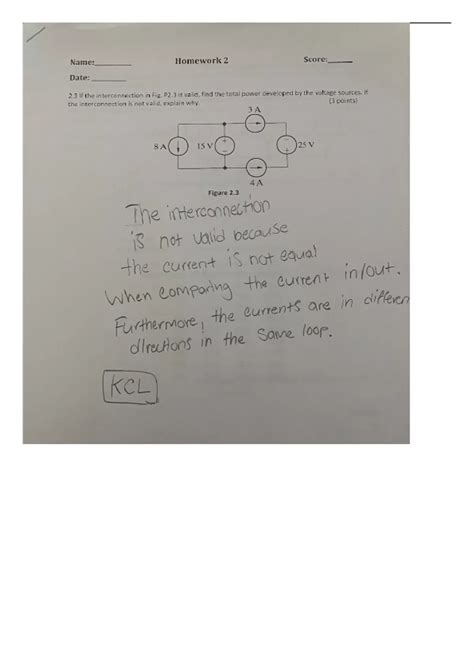 Name:________ Homework 2 Score:_____
Date: ________
2.3 If the interconnection in Fig. P2.3 is valid, find the total power developed by the voltage sources. If
the interconnection is not valid, explain why. (3 points)
3 A
8 A 15 V 25 V
4 A
Figure 2.3
The interconnection
is not valid because
the current is not equal
When comparing the current in/out.
Furthermore, the currents are in differen
directions in the same loop.
KCL